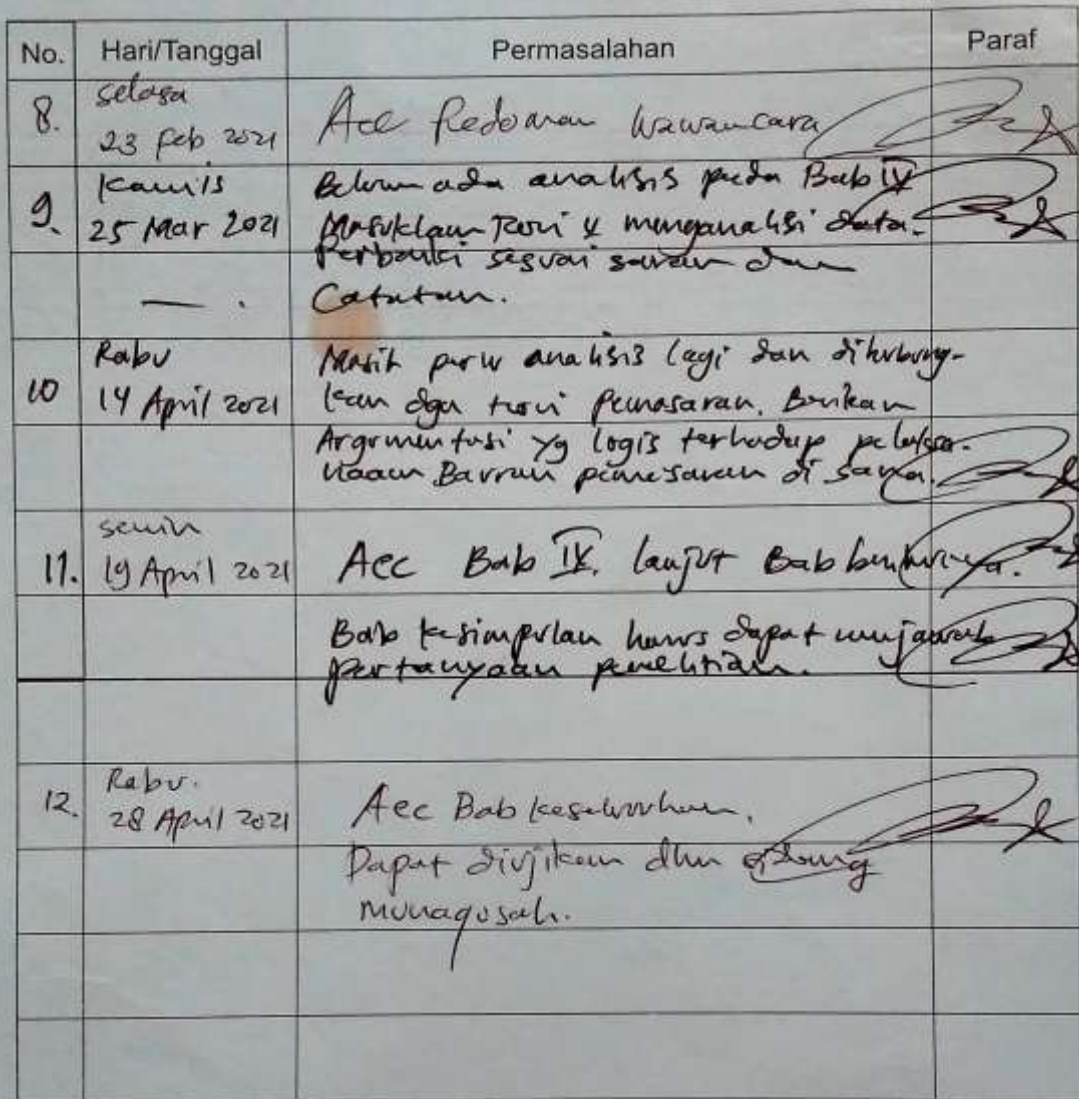 No. Hari/Tanggal Permasalahan Paraf
8. Selasa
23 Feb 2021 Acc Pedoman Wawancara
9. Kamis Belum ada analisis pada Bab IV
25 Mar 2021 Masukkan Teori & menganalisi data.
Perbaiki sesuai saran dan
— . Catatan.
10 Rabu Masih perlu analisis lagi dan dihubung-
14 April 2021 kan dgn teori pemasaran. Berikan
Argumentasi yg logis terhadap pelaksa-
naan Bauran pemasaran di sana.
11. Senin
19 April 2021 Acc Bab IV. lanjut Bab berikutnya.
Bab kesimpulan harus dapat menjawab
pertanyaan penelitian.
12. Rabu.
28 April 2021 Acc Bab keseluruhan.
Dapat diujikan dlm sidang
munaqosah.